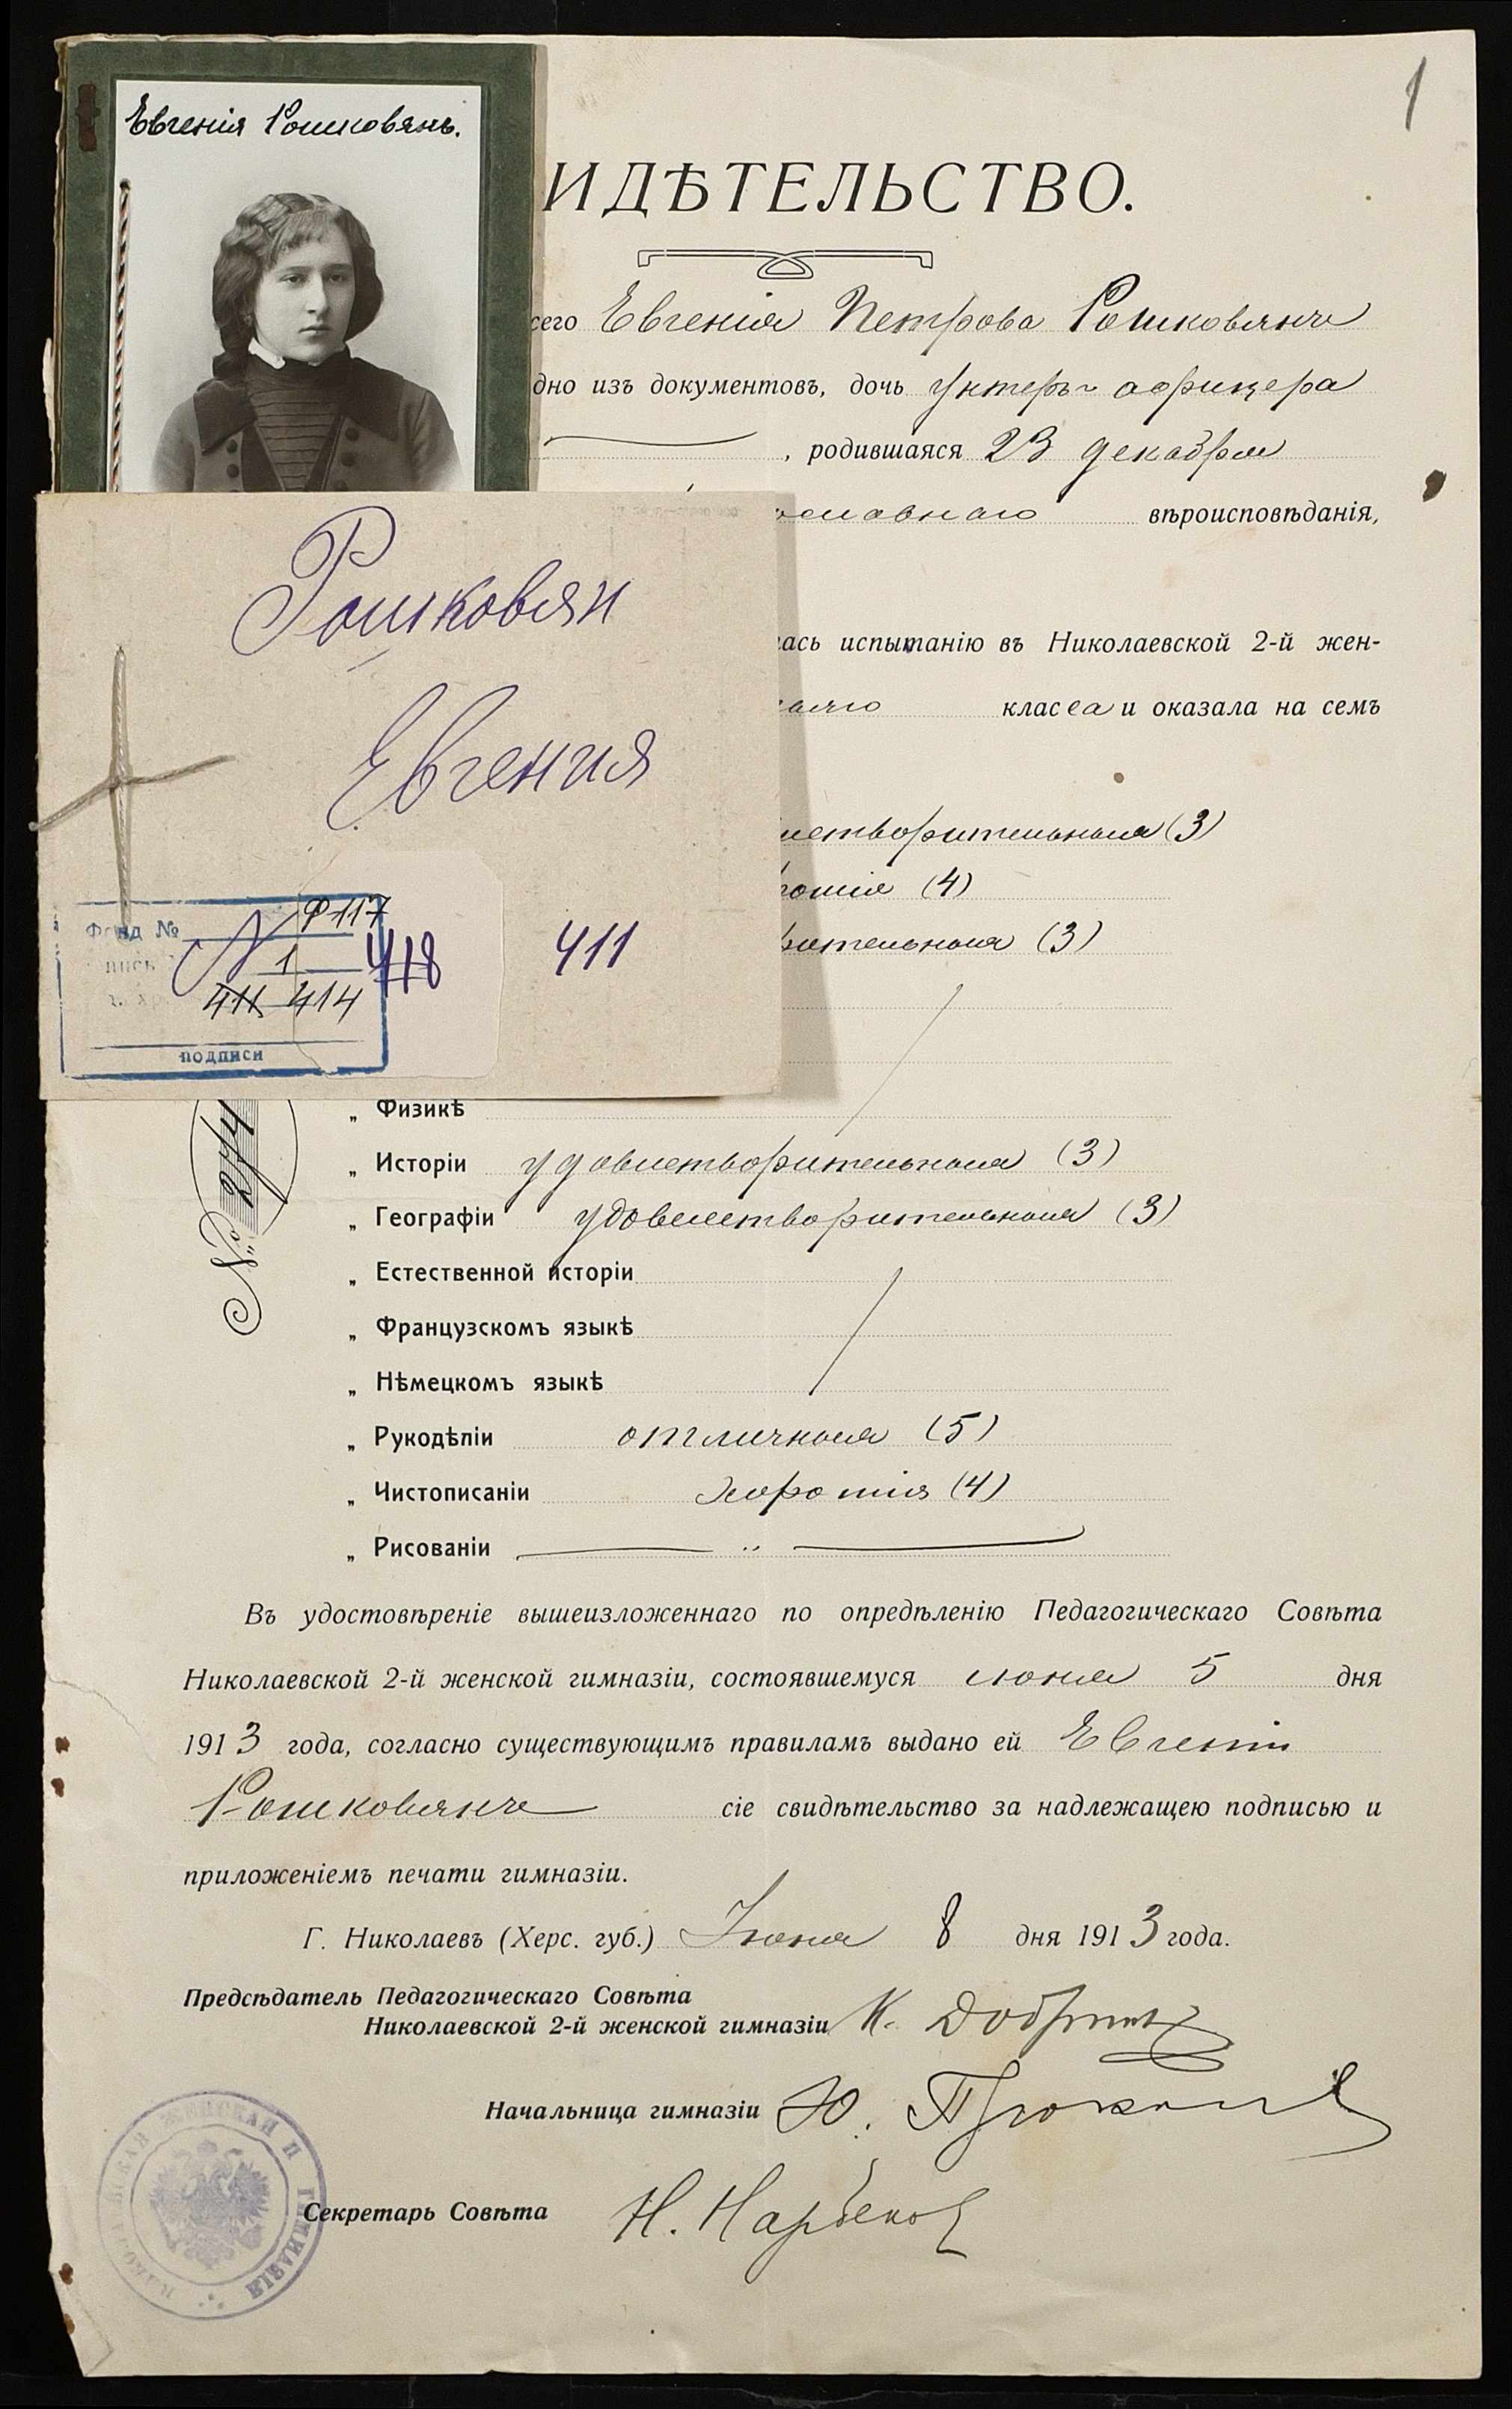 1
Евгенія Рошковянъ.
ИДѢТЕЛЬСТВО.
сего Евгенія Петрова Рошковянъ
дно изъ документовъ, дочь унтеръ-офицера
, родившаяся 23 декабря
славнаго вѣроисповѣданія,
Рошковян
Евгения
лась испытанію въ Николаевской 2-й жен-
класса и оказала на семъ
летворительныя (3)
рошія (4)
рительныя (3)
Фонд № Ф117
1
411 414
418
411
подписи
№ 274
„ Физикѣ
„ Исторіи удовлетворительныя (3)
„ Географіи удовлетворительныя (3)
„ Естественной исторіи
„ Французскомъ языкѣ
„ Нѣмецкомъ языкѣ
„ Рукодѣліи отличныя (5)
„ Чистописаніи хорошія (4)
„ Рисованіи „
Въ удостовѣреніе вышеизложеннаго по опредѣленію Педагогическаго Совѣта
Николаевской 2-й женской гимназіи, состоявшемуся іюня 5 дня
1913 года, согласно существующимъ правиламъ выдано ей Евгеніи
Рошковянъ сіе свидѣтельство за надлежащею подписью и
приложеніемъ печати гимназіи.
Г. Николаевъ (Херс. губ.) Іюня 8 дня 1913 года.
Предсѣдатель Педагогическаго Совѣта
Николаевской 2-й женской гимназіи К.
Начальница гимназіи Ю.
Секретарь Совѣта Н. Нарбеков
ЖЕНСКАЯ II ГИМНАЗІЯ